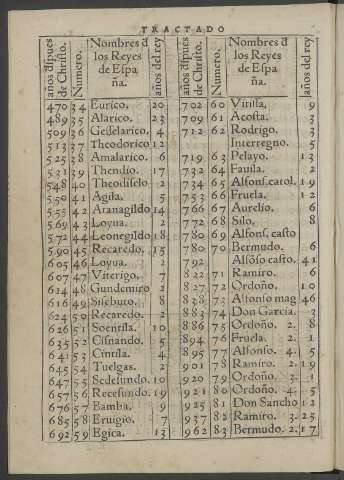 TRACTADO
años dspues de Christo.
Numero.
Nombres đ los Reyes de Espa ña.
años del rey
470 34 Eurico. 20
489 35 Alarico. 23
509 36 Gesselarico. 4
513 37 Theodorico 12
525 38 Amalarico. 6
531 39 Thendio. 17
548 40 Theodisclo 2
550 41 Agila. 5
555 42 Aranagildo 14
569 43 Loyua. 2
572 44 Leonegildo 18
590 45 Recaredo. 15
605 46 Loyua. 2
607 47 Viterigo. 7
614 48 Gundemiro 2
616 49 Sisebuto. 8
624 50 Recaredo. 2
626 51 Soentila. 10
635 52 Cisnando. 5
641 53 Cintila. 4
645 54 Tuelgas. 2
647 55 Sedesundo. 10
657 56 Recesundo. 19
676 57 Bamba. 9
685 58 Eruigio. 7
692 59 Egica. 13
años dspues de Christo.
Numero.
Nombres đ los Reyes de Espa ña.
años del rey
702 60 Vitissa. 9
709 61 Acosta. 3
712 62 Rodrigo. 3
Interregno. 5
719 63 Pelayo. 13
732 64 Fauila. 2
734 65 Alfons.catol. 19
753 66 Fruela. 12
766 67 Aurelio. 6
772 68 Silo. 8
780 69 Alfons. casto
780 70 Bermudo. 6
792 Alfõso casto. 41
822 71 Ramiro. 6
827 72 Ordoño. 10
838 73 Alfonso mag 46
883 74 Don Garcia. 3
886 75 Ordoño. 2. 8
894 76 Fruela. 2. 1
895 77 Alfonso. 4. 5
901 78 Ramiro. 2. 19
920 79 Ordoño. 3. 1
921 80 Ordoño. 4. 5
925 81 Don Sancho 12
937 82 Ramiro. 3. 25
962 83 Bermudo. 2. 17